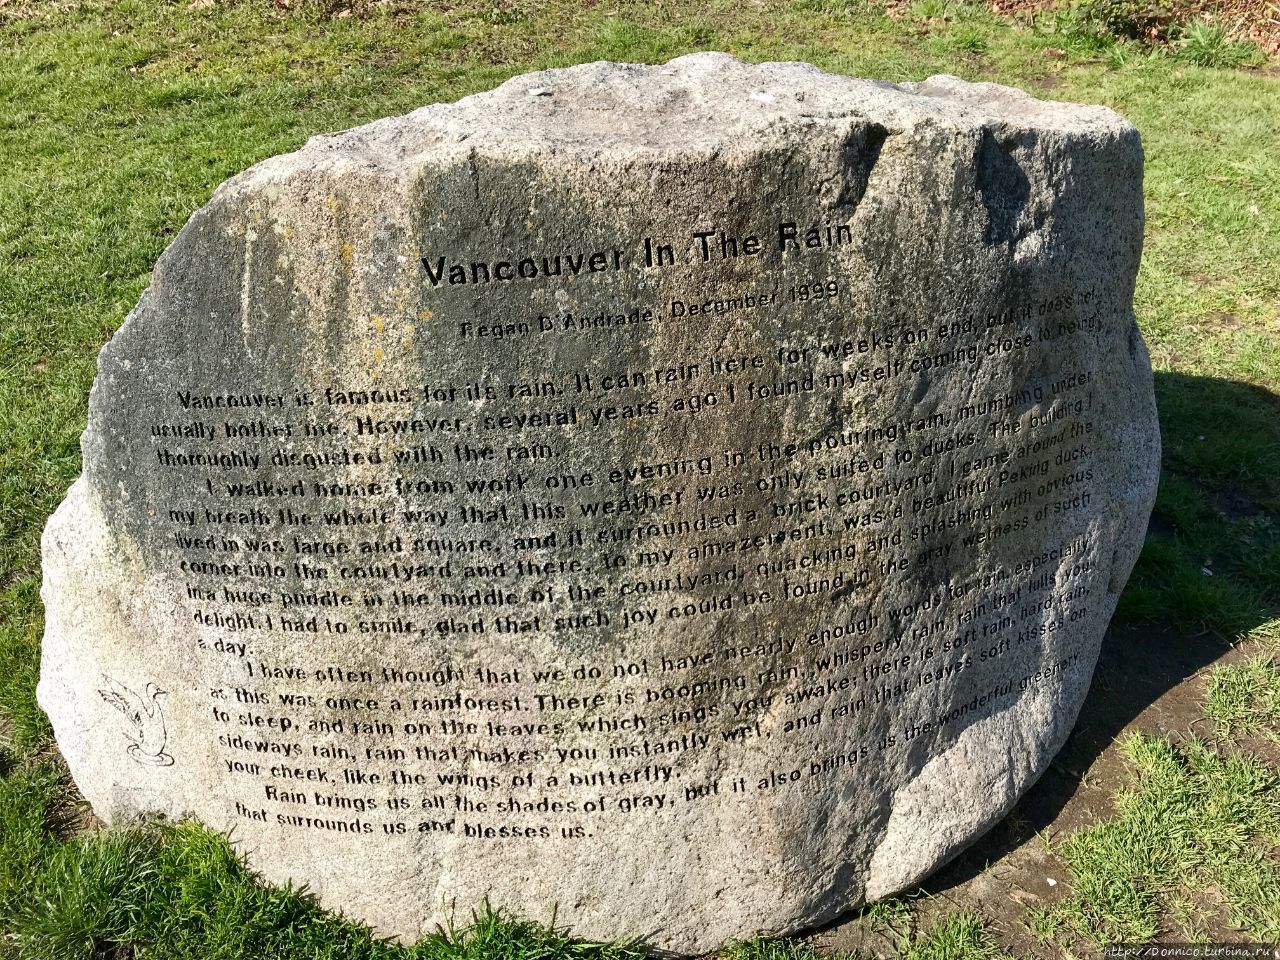 Vancouver In The Rain
Regan D'Andrade, December 1999
Vancouver is famous for its rain. It can rain here for weeks on end, but it does not
usually bother me. However, several years ago I found myself coming close to being
thoroughly disgusted with the rain.
I walked home from work one evening in the pouring rain, mumbling under
my breath the whole way that this weather was only suited to ducks. The building I
lived in was large and square, and it surrounded a brick courtyard. I came around the
corner into the courtyard and there, to my amazement, was a beautiful Peking duck,
in a huge puddle in the middle of the courtyard, quacking and splashing with obvious
delight. I had to smile, glad that such joy could be found in the gray wetness of such
a day.
I have often thought that we do not have nearly enough words for rain, especially
as this was once a rainforest. There is booming rain, whispery rain, rain that lulls you
to sleep, and rain on the leaves which sings you awake; there is soft rain, hard rain,
sideways rain, rain that makes you instantly wet, and rain that leaves soft kisses on
your cheek, like the wings of a butterfly.
Rain brings us all the shades of gray, but it also brings us the wonderful greenery
that surrounds us and blesses us.
http://Donnico.turbina.ru